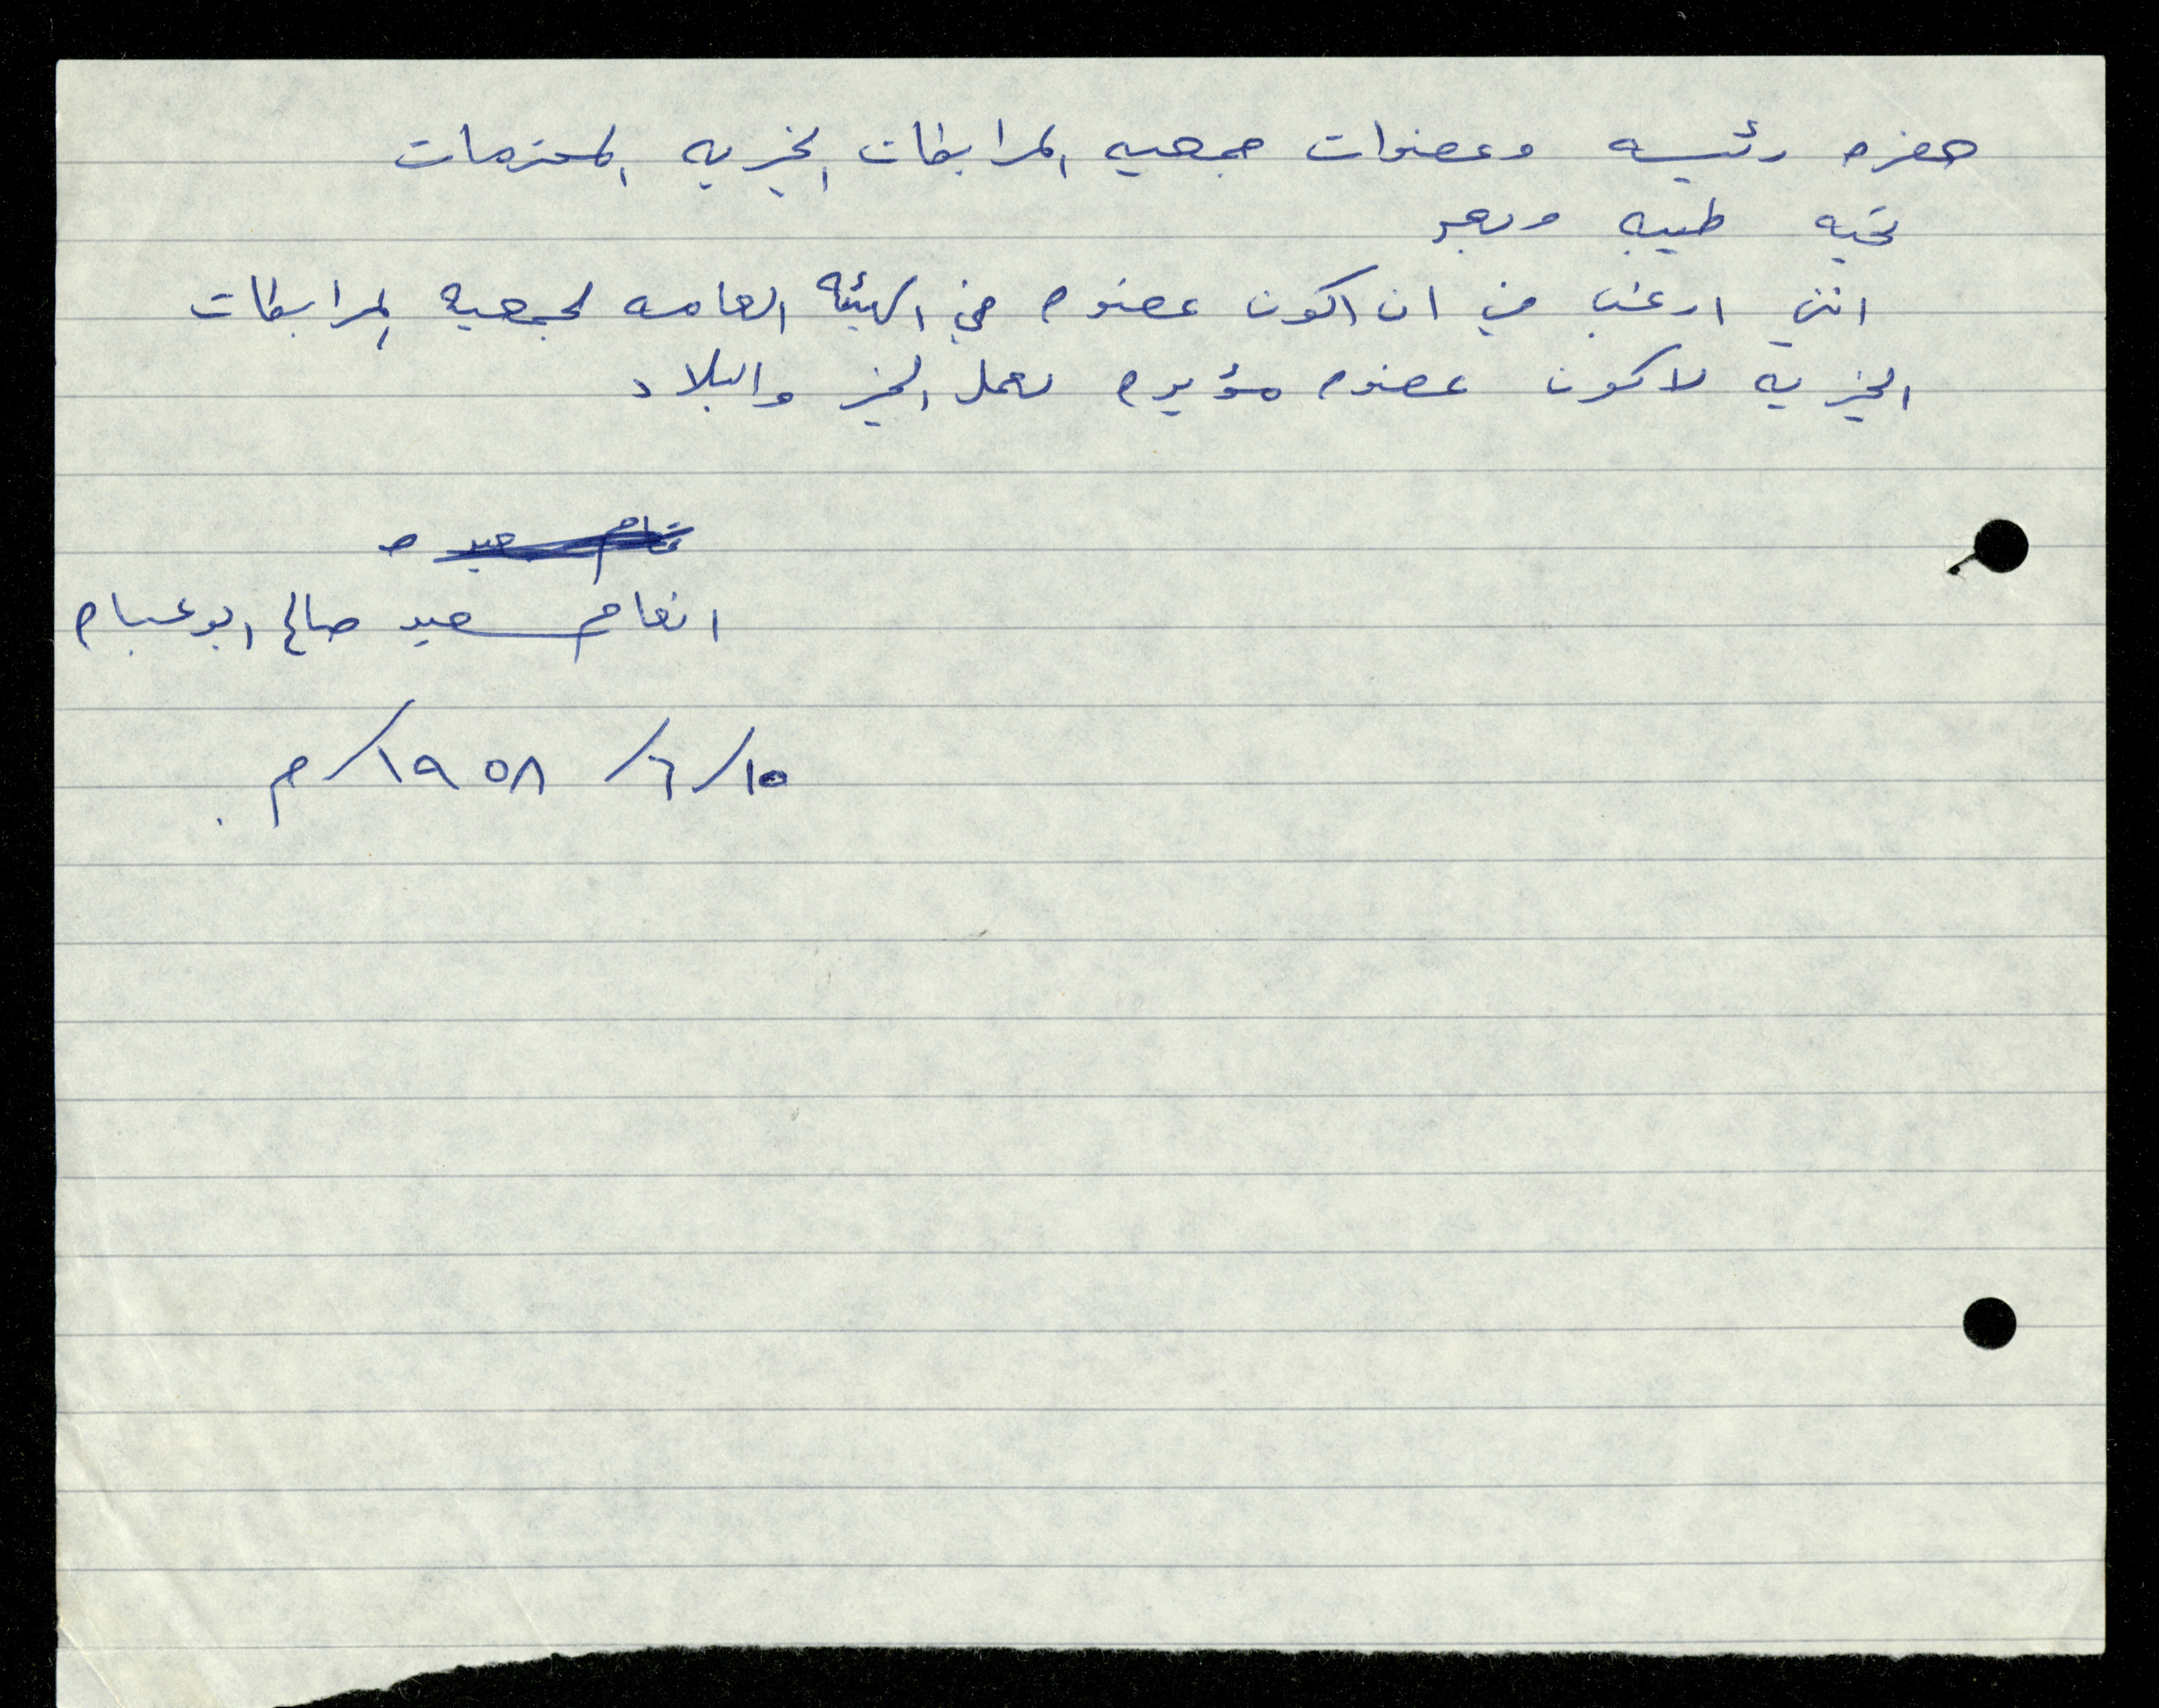 حضره رئيسه وعضوات جمعيه المرابطات الخيريه المحترمات
تحيه طيبه وبعد
انني ارغب في ان اكون عضوه في الهيئه العامه لجمعيه المرابطات
الخيريه لاكون عضوه مؤيده لعمل الخير والبلاد
انعام سعيد صالح ابو عباه
١٥/٦/١٩٥٨/م.